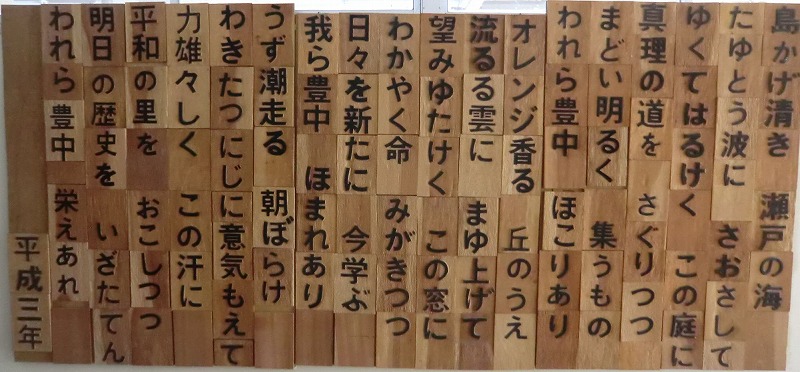 島かげ清き　瀬戸の海
たゆとう波に　さおさして
ゆくてはるけく　この庭に
真理の道を　さぐりつつ
まどい明るく　集うもの
われら豊中　ほこりあり
オレンジ香る　丘のうえ
流るる雲に　まゆ上げて
望みゆたけく　この窓に
わかやく命　みがきつつ
日々を新たに　今学ぶ
我ら豊中　ほまれあり
うず潮走る　朝ぼらけ
わきたつにじに意気もえて
力雄々しく　この汗に
平和の里を　おこしつつ
明日の歴史を　いざたてん
われら豊中　栄えあれ
平成三年